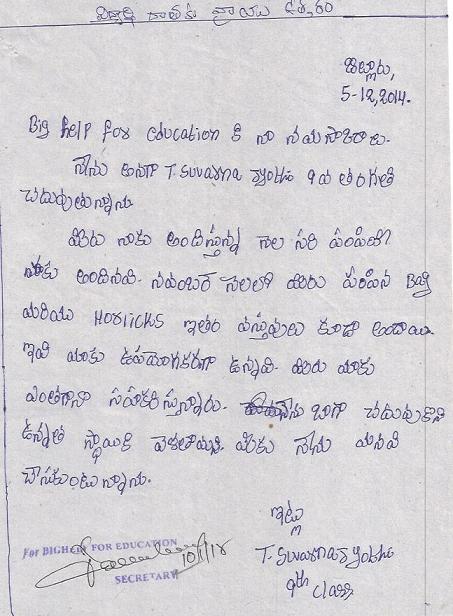 విద్యార్థి దాతకు వ్రాయు ఉత్తరం
జిల్లూరు,
5-12,2014.
Big help for education కి నా నమస్కారాలు.
నేను అనగా T. Suvarna Jyothi 9వ తరగతి
చదువుతున్నాను.
మీరు నాకు అందిస్తున్న నెల సరి పంపిణీ
నాకు అందినవి. నవంబర్ నెలలో మీరు పంపిన Bag
మరియు Horlicks ఇతర వస్తువులు కూడా అందాయి.
ఇవి మాకు ఉపయోగకరంగా ఉన్నవి. మీరు మాకు
ఎంతగానో సహకరిస్తున్నారు. నేను బాగా చదువుకొని
ఉన్నత స్థాయికి వెళతానని మీకు నేను మనవి
చేసుకుంటున్నాను.
ఇట్లు
T. Suvarna Jyothi
9th class
For BIGHELP FOR EDUCATION
SECRETARY